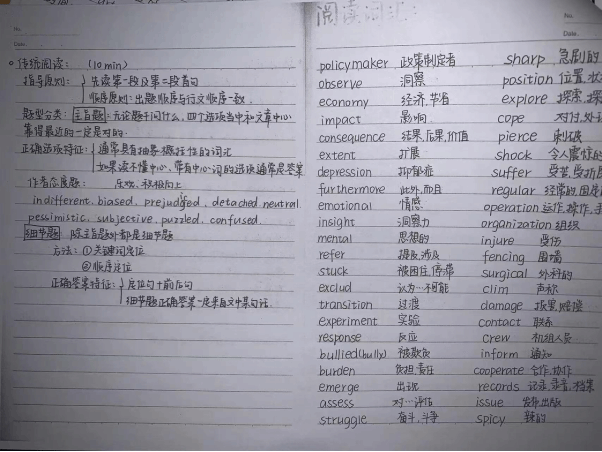 No.
Date.
传统阅读: (10min)
指导原则: 先读第一段及第二段首句
顺序原则:出题顺序与行文顺序一致.
题型分类: 主旨题:无论题干问什么,四个选项当中和文章中心
靠得最近的一定是对的.
正确选项特征: 通常具有抽象概括性的词汇
如果读不懂中心,带有中心词的选项通常是答案
作者态度题: 乐观、积极向上
indifferent. biased. prejudged. detached. neutral.
pessimistic. subjective. puzzled. confused.
细节题 除主旨题外都是细节题
方法: ①关键词定位
②顺序定位
正确答案特征: 定位句+前后句
细节题正确答案一定来自文中某句话.
阅读词汇:
No.
Date.
policymaker 政策制定者 sharp 急剧的
observe 洞察 position 位置,状
economy 经济,节省 explore 探索,探
impact 影响 cope 对付,处
consequence 结果,后果,价值 pierce 刺破
extent 扩展 shock 令人震惊的
depression 抑郁症 suffer 受苦,受
furthermore 此外,而且 regular 经常的,固定
emotional 情感 operation 运作,操作,手
insight 洞察力 organization 组织
mental 思想的 injure 受伤
refer 提及,涉及 fencing 围墙
stuck 被困住,停滞 surgical 外科的
exclud 认为…不可能 clim 声称
transition 过渡 damage 损害,赔偿
experiment 实验 contact 联系
response 反应 crew 机组人员
bullied(bully) 被欺负 inform 通知
burden 负担,责任 cooperate 合作,协作
emerge 出现 records 记录,录音,档案
assess 对…评估 issue 发布,出版
struggle 奋斗,斗争 spicy 辣的